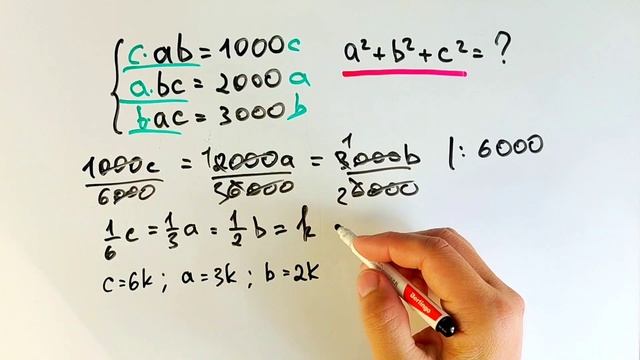 c·ab = 1000c
a·bc = 2000a
b·ac = 3000b
a² + b² + c² = ?
1000c/6000 = 1 2000a/3 6000 = 1 3000b/2 6000 |: 6000
1/6 c = 1/3 a = 1/2 b = k
c = 6k ; a = 3k ; b = 2k
Berlingo